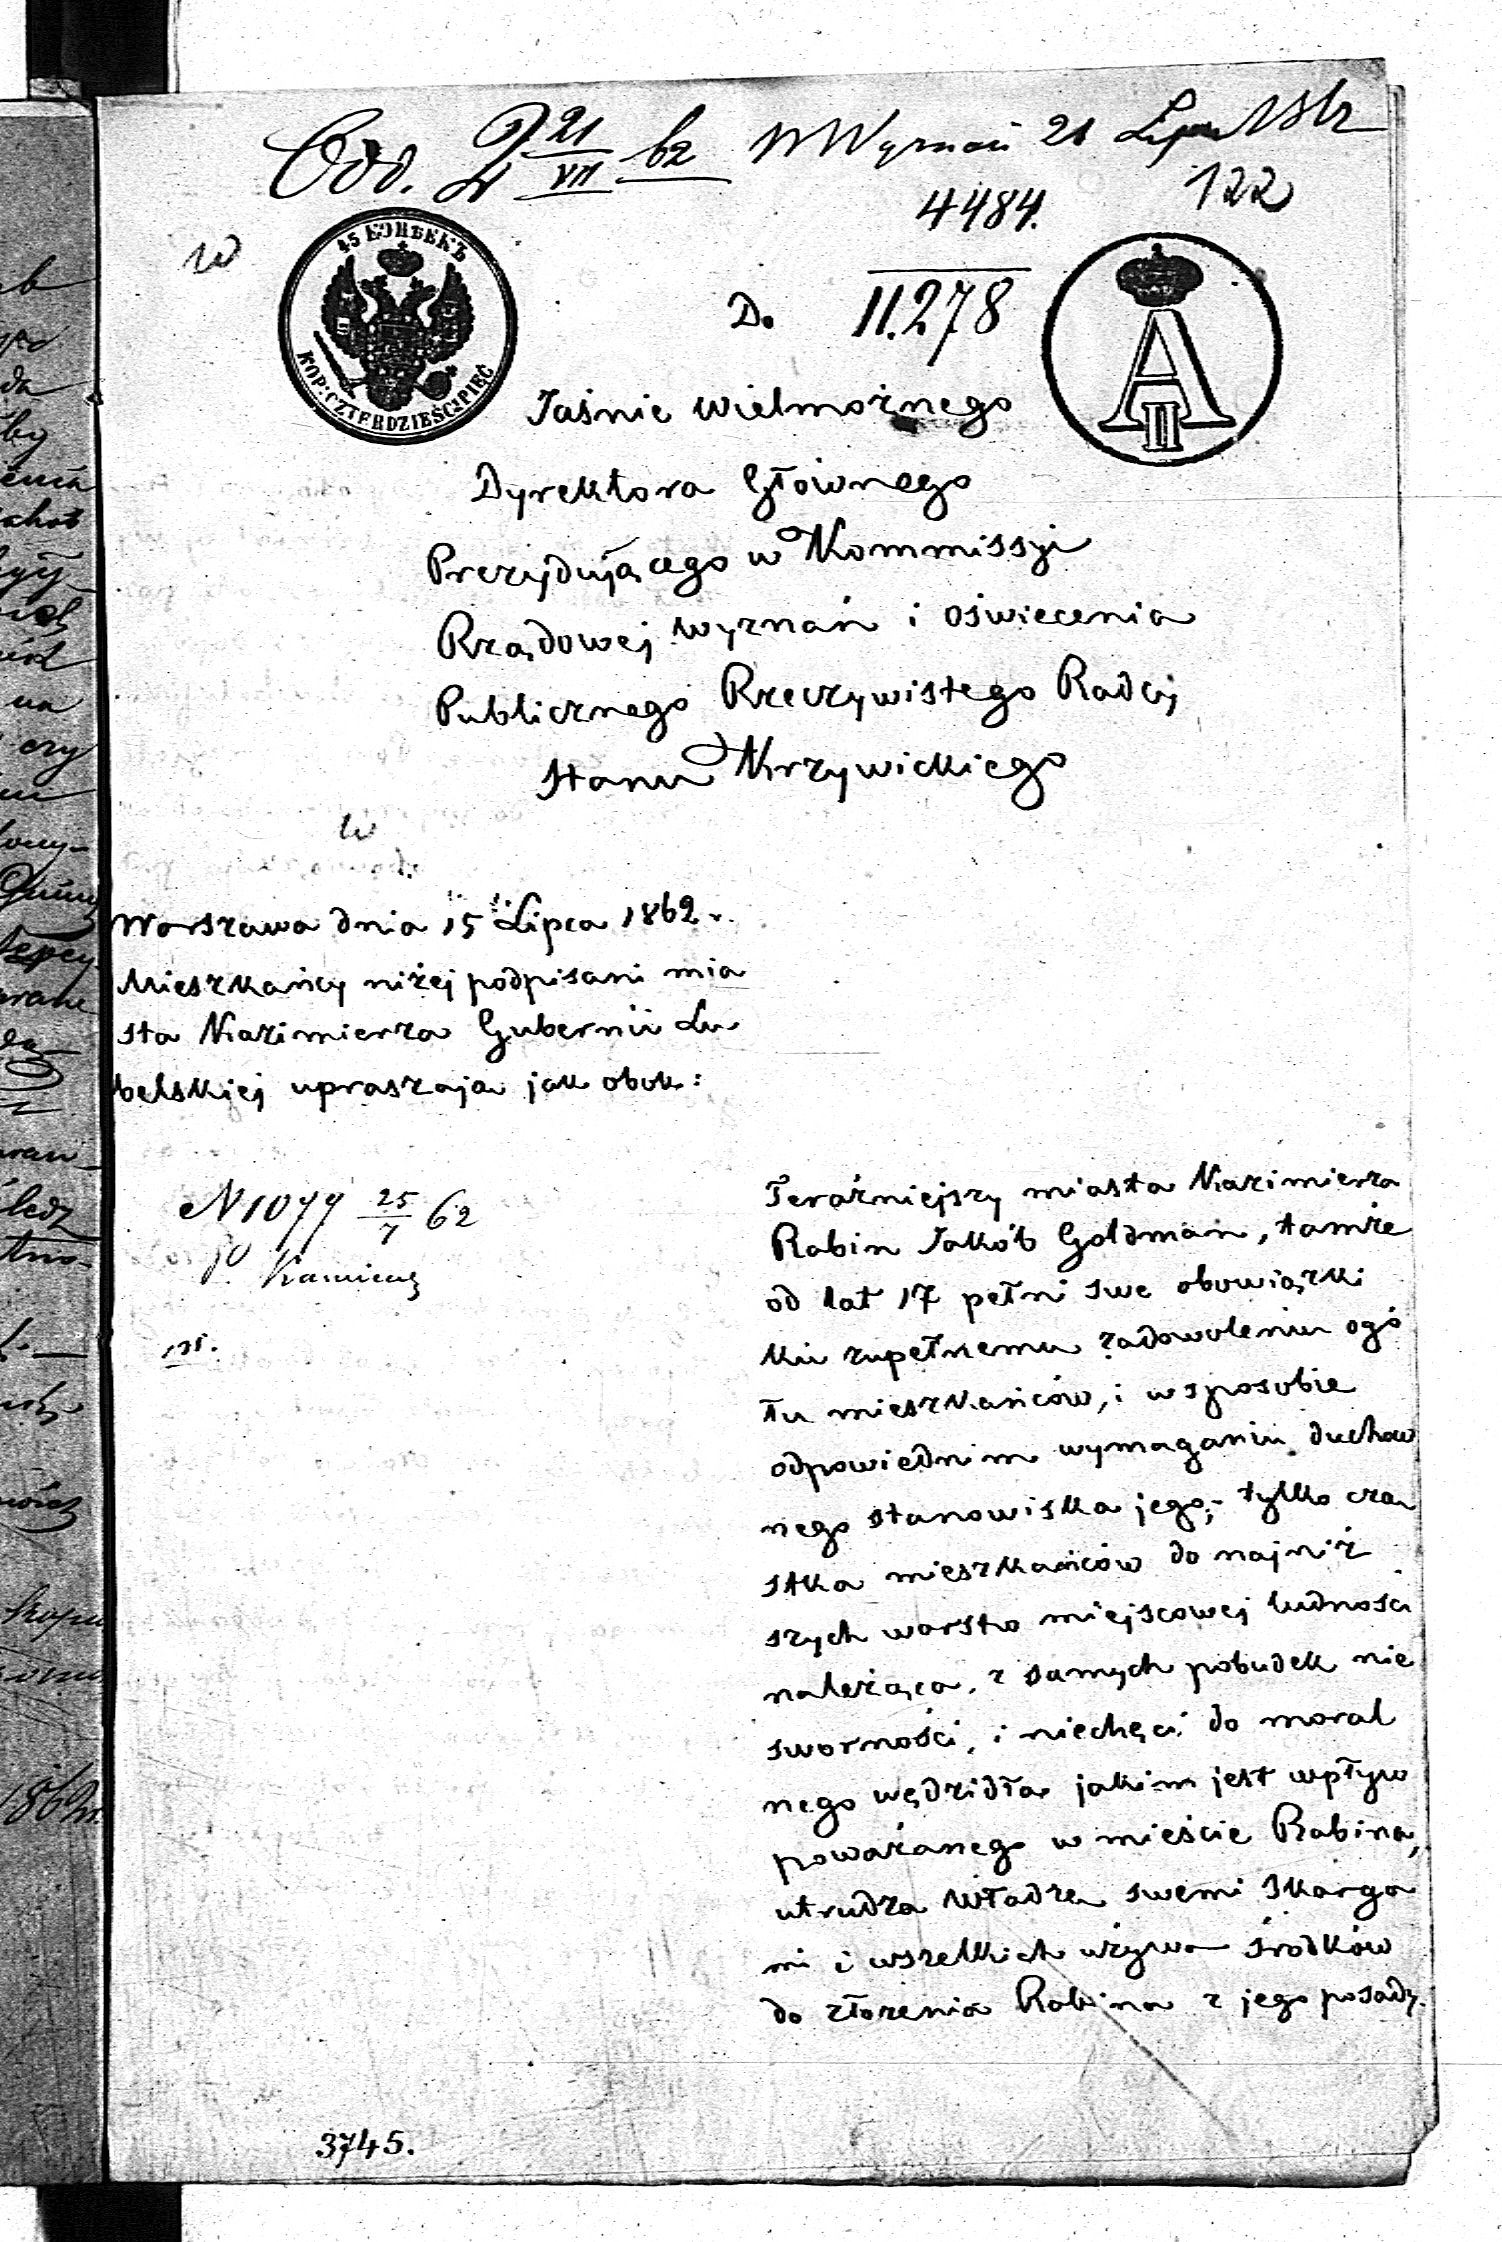 Odd. 2 21/VII 62 W Wyznań 21 Lipca 1862
4484. 122
w
45 КОПѢЕКЪ
KOP: CZTERDZIEŚCI PIĘĆ
A II
D. 11.278
Jaśnie Wielmożnego
Dyrektora Głównego
Prezydującego w Kommissyi
Rządowej Wyznań i Oświecenia
Publicznego Rzeczywistego Radcy
Stanu Krzywickiego
w
Warszawa dnia 15 Lipca 1862.
Mieszkańcy niżej podpisani mia
sta Kazimierza Gubernii Lu
belskiej upraszaja jak obok:
N 1077 25/7 62
Teraźniejszy miasta Kazimierza
Rabin Jakób Goldman, tamże
od lat 17 pełni swe obowiązki
ku zupełnemu zadowoleniu ogó
łu mieszkańców, i w sposobie
odpowiednim wymaganiu duchow
nego stanowiska jego;- tylko czą
stka mieszkańców do najniż
szych warstw miejscowej ludności
należąca, z samych pobudek nie
sworności, i niechęci do moral
nego wędzidła jakim jest wpływ
poważanego w mieście Rabina,
utrudza Władze swemi skarga
mi i wszelkich używa środków
do złożenia Rabina z jego posady.
3745.